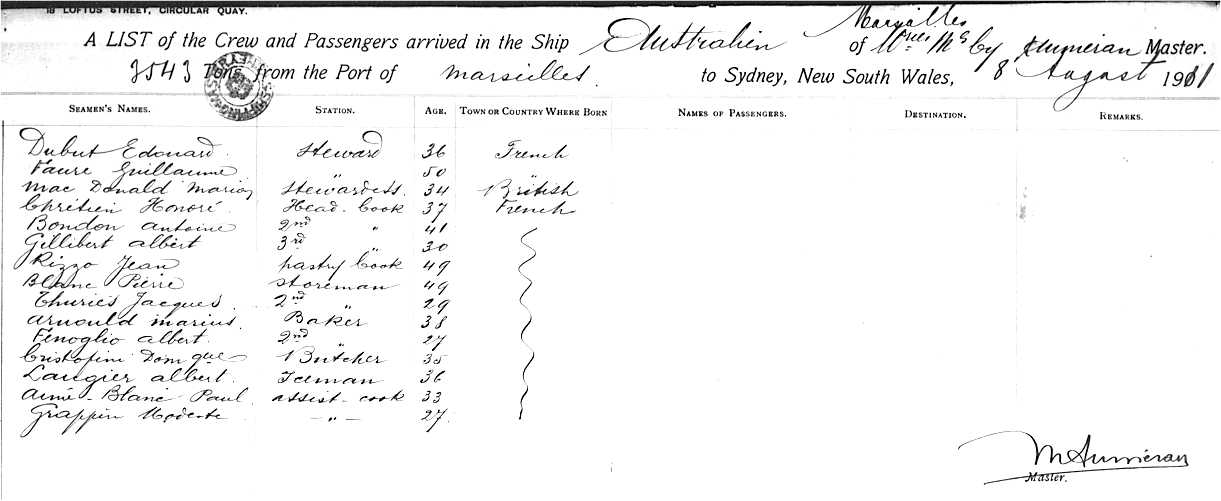 18 LOFTUS STREET, CIRCULAR QUAY.
Marseilles
A LIST of the Crew and Passengers arrived in the Ship Australien of by Master.
3543 Tons, from the Port of Marseilles. to Sydney, New South Wales, 8 August 1911
SEAMEN'S NAMES. STATION. AGE. TOWN OR COUNTRY WHERE BORN NAMES OF PASSENGERS. DESTINATION. REMARKS.
Dubut Edouard. Steward 36 French
Faure Guillaume " 50
Mac Donald Marion Stewardess. 34 British
Chrétien Honoré. Head Cook 37 French
Bondon Antoine 2nd " 41
Gillibert Albert 3rd " 30
Rizzo Jean Pastry Cook 49
Blanc Pierre Storeman 49
Thuriès Jacques 2nd " 29
Arnould Marius. Baker 38
Fenoglio Albert. 2nd " 27
Cristofini Domque Butcher 35
Laugier Albert. Iceman 36
Aimé-Blanc Paul. Assist-Cook 33
Grappin Modeste -"- 27.
Master.